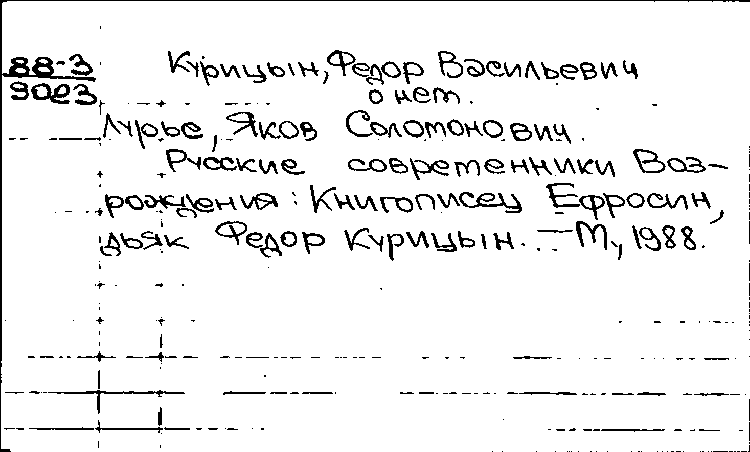 88-3
9023
Курицын, Федор Васильевич
о нем.
Лурье, Яков Соломонович.
Русские современники Воз-
рождения: Книгописец Ефросин,
дьяк Федор Курицын. — М., 1988.